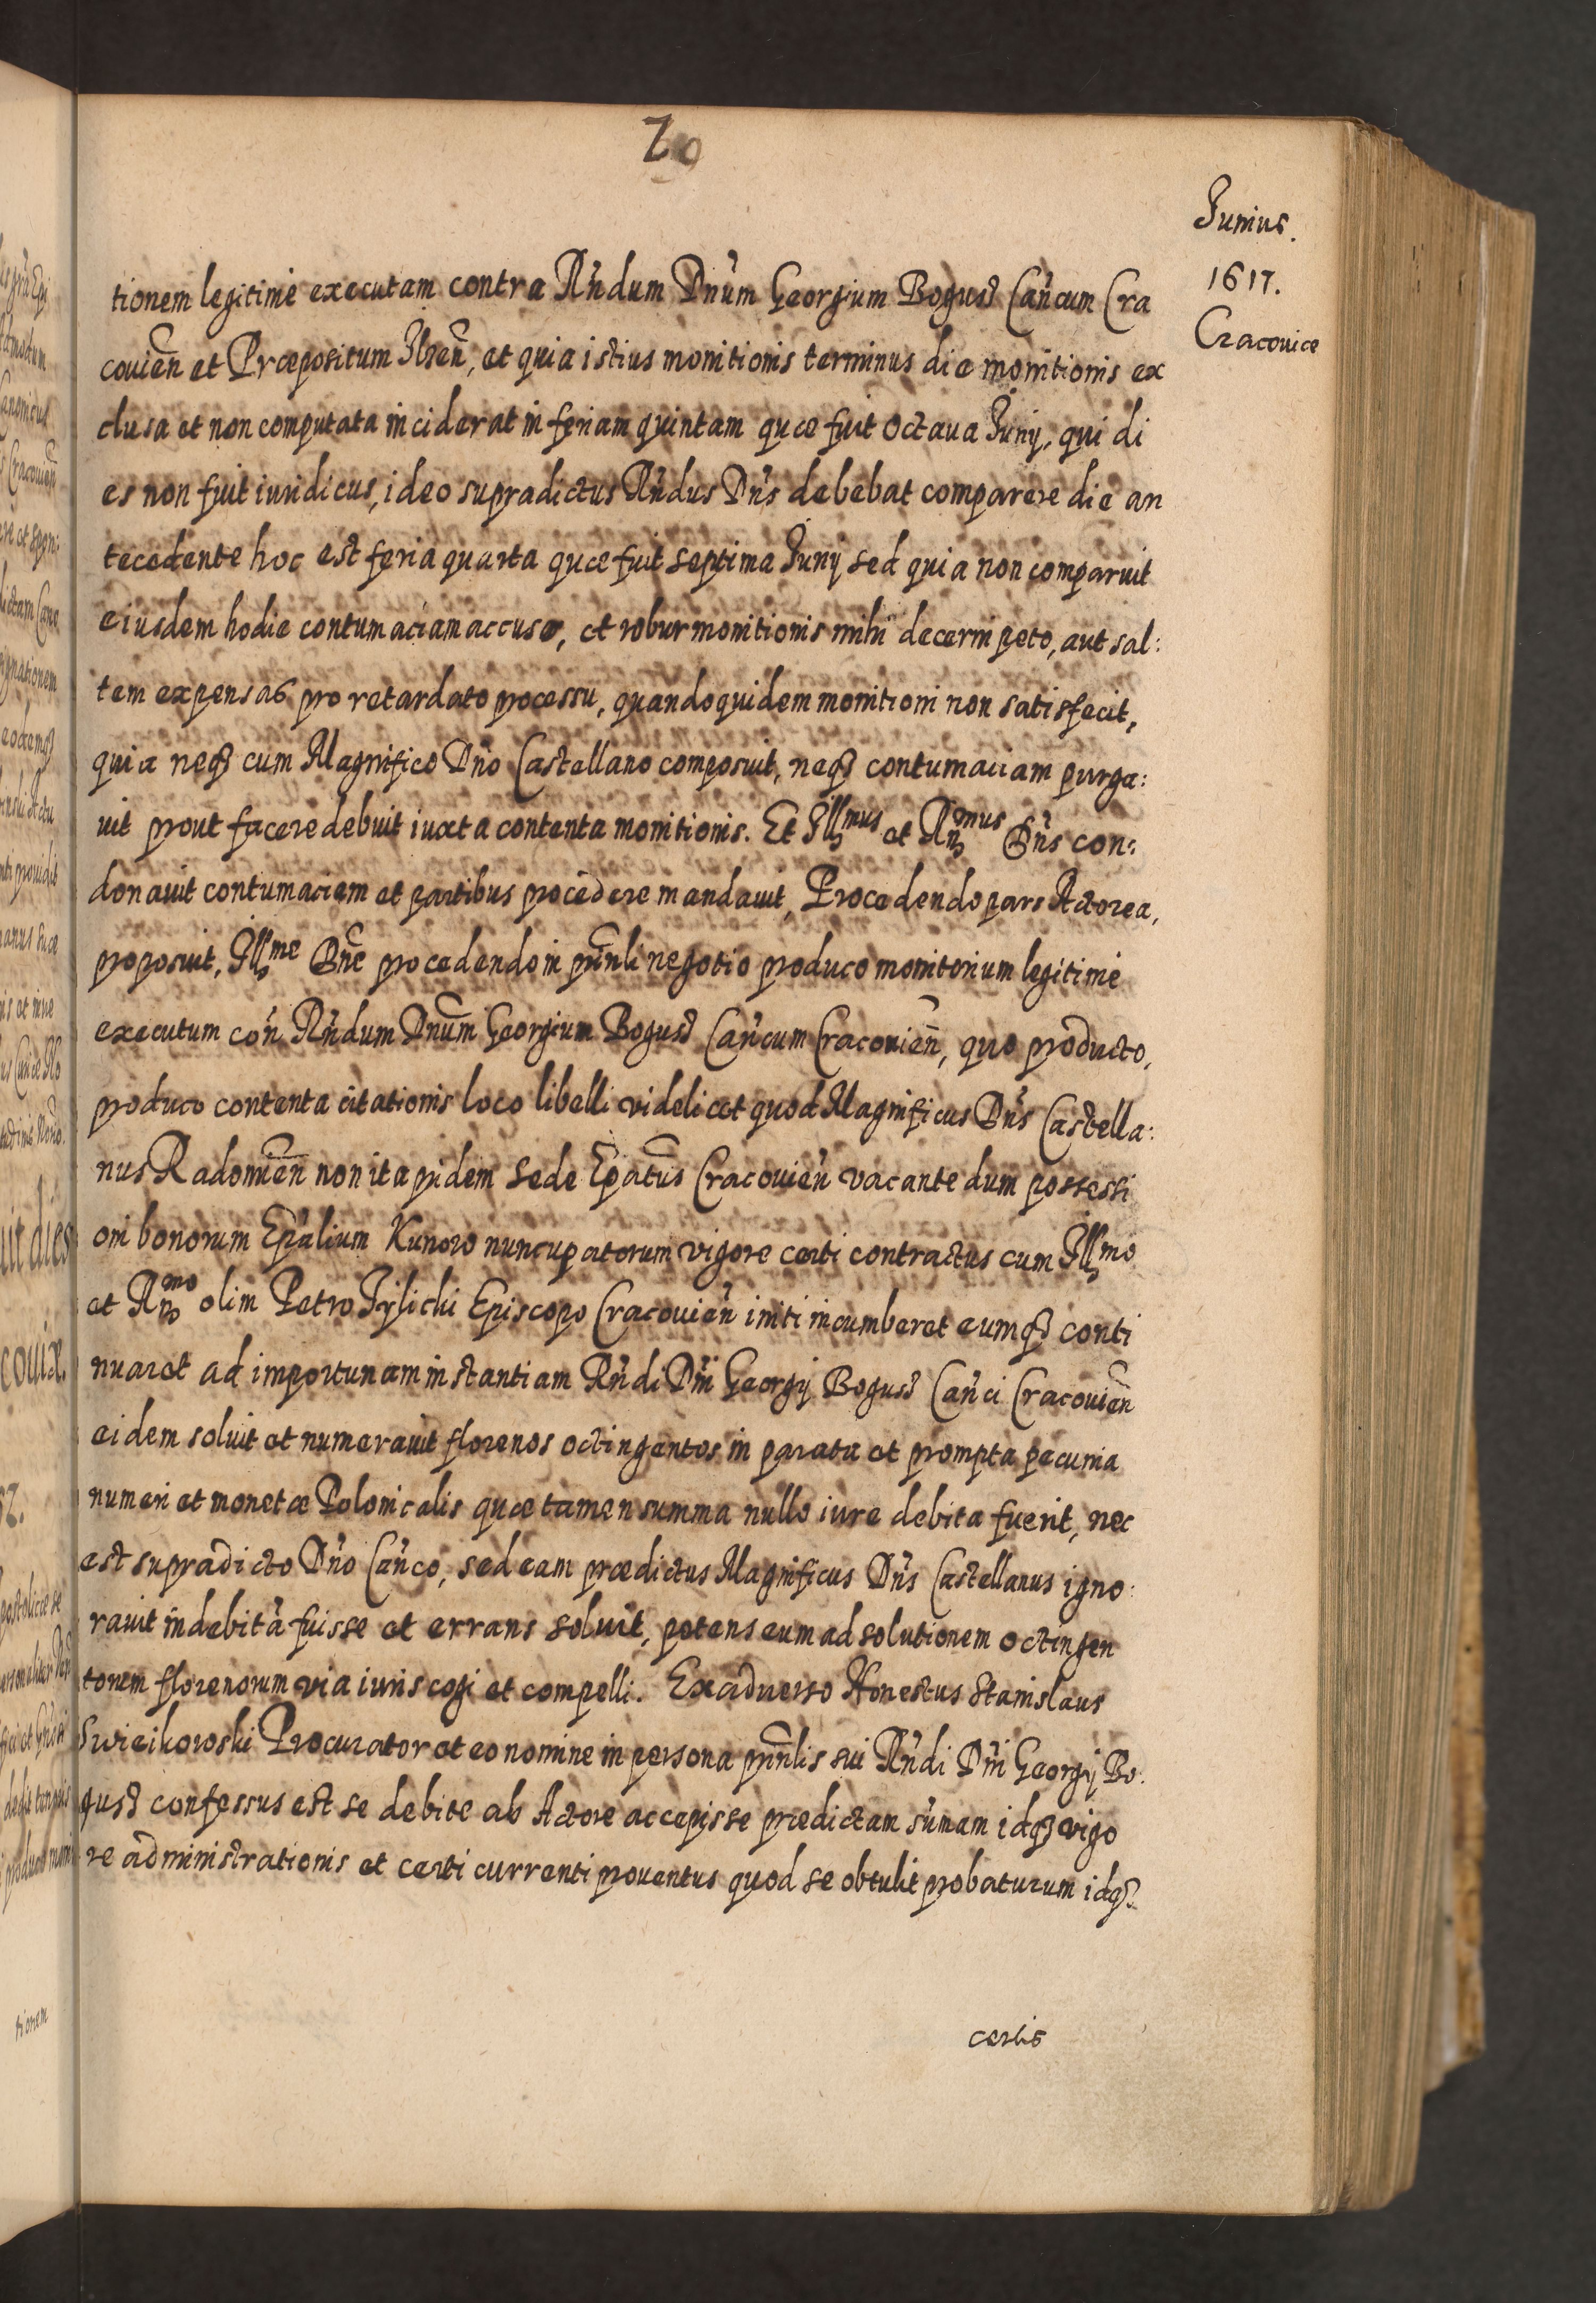 20
Junius.
1617.
Cracoviæ
tionem legitimè executam contra Rńdum Dńum Georgium Bogusz Cańcum Cra
couień et Præpositum Ilzeń, et quia istius monitionis terminus die monitionis ex
clusa et non computata inciderat in feriam quintam quæ fuit octaua Junij, qui di
es non fuit iuridicus, ideo supradictus Rńdus Dńs debebat comparere die an
tecedente hoc est feria quarta quæ fuit septima Junij sed quia non comparuit
eiusdem hodie contumaciam accuso, et robur monitionis mihi decerni peto, aut sal:
tem expensas pro retardato processu, quandoquidem monitioni non satisfecit,
quia neqȝ cum Magnifico Dńo Castellano composuit, neqȝ contumaciam purga:
uit prout facere debuit iuxta contenta monitionis. Et Illmus et Rńmus Dńs con:
donauit contumaciem et partibus procedere mandauit, Procedendo pars Actorea,
proposuit, Illme Dńe procedendo in prińli negotio produco monitorium legitimè
executum cóń Rńdum Dńum Georgium Bogusz Cańcum Cracouień, quo producto,
produco contenta citationis loco libelli videlicet quod Magnificus Dńs Castella:
nus Radomień non ita pridem sede Epatus Cracouień vacante dum possessi
oni bonorum Epalium Kunow nuncupatorum vigore certi contractus cum Illmo
et Rńmo olim Petro Tylicki Episcopo Cracouień initi incumberet eumqȝ conti
nuaret ad importunam instantiam Rńdi Dńi Georgij Bogusz Cańci Cracouień
eidem soluit et numerauit florenos octingentos in parata et prompta pecunia
numeri et monetæ Polonicalis quæ tamen summa nullo iure debita fuerit, nec
est supradicto Dńo Cańco, sed eam prædictus Magnificus Dńs Castellanus igno:
rauit indebitá fuisse et errans soluit, potens eum ad solutionem octingen
torum florenorum via iuris cogi et compelli. Exaduerso Honestus Stanislaus
Swieikowski Procurator et eo nomine in persona prińlis sui Rńdi Dńi Georgij Bo:
gusz confessus est se debite ab Actore accepisse prædictam sumam idqȝ vigo
re administrationis et certi currenti prouentus quod se obtulit probaturum idqȝ
certis